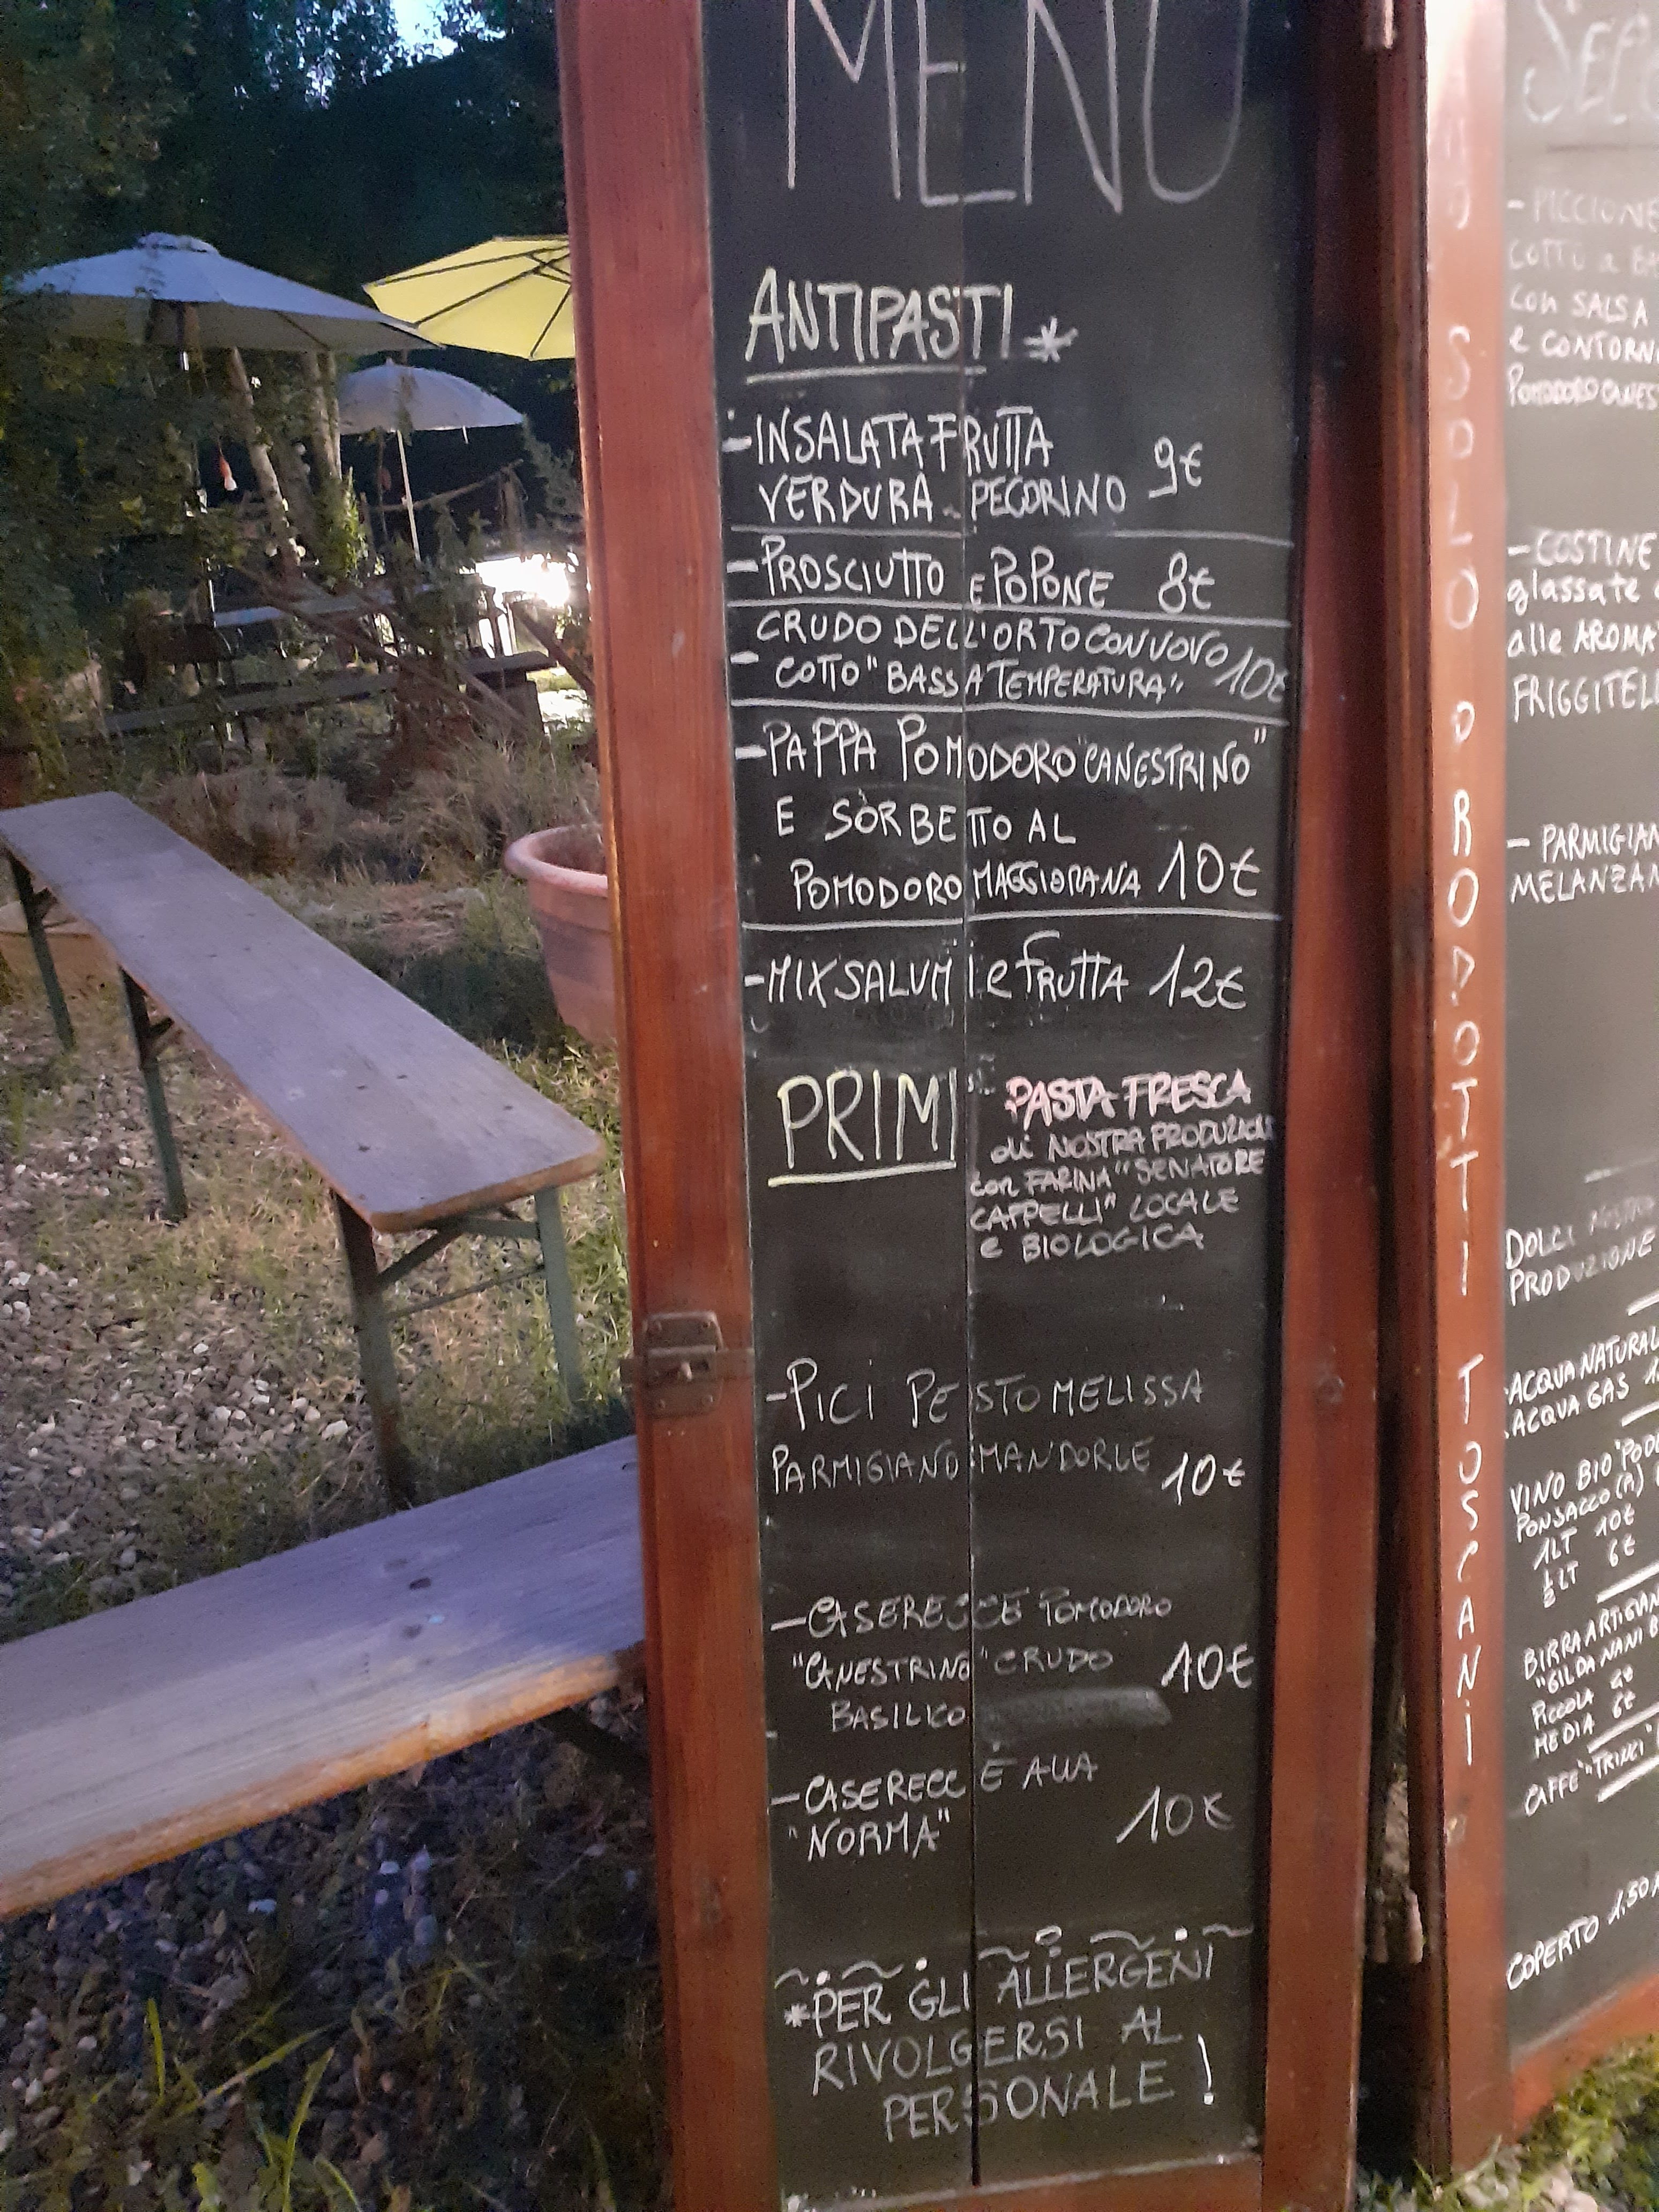 MENÙ
ANTIPASTI *
- INSALATA FRUTTA
VERDURA - PECORINO 9€
- PROSCIUTTO E POPONE 8€
CRUDO DELL'ORTO CON UOVO
- COTTO "BASSA TEMPERATURA" 10€
- PAPPA POMODORO "CANESTRINO"
E SORBETTO AL
POMODORO MAGGIORANA 10€
- MIX SALUMI e FRUTTA 12€
PRIMI
PASTA FRESCA
di NOSTRA PRODUZIONE
con FARINA "SENATORE
CAPPELLI" LOCALE
e BIOLOGICA
- PICI PESTO MELISSA
PARMIGIANO MANDORLE 10€
- CASERECCE POMODORO
"CANESTRINO" CRUDO 10€
BASILICO
- CASERECCE ALLA
"NORMA" 10€
*PER GLI ALLERGENI
RIVOLGERSI AL
PERSONALE !
SOLO PRODOTTI TOSCANI
- PICCIONE
COTTO a
con SALSA
e CONTORN
POMODORO CANES
- COSTINE
glassate
alle AROMA
FRIGGITEL
- PARMIGIAN
MELANZAN
DOLCI NOSTRA
PRODUZIONE
ACQUA NATURAL
ACQUA GAS
VINO BIO "PODE
PONSACCO (PI)
1LT 10€
½LT 6€
BIRRA ARTIGIAN
"GILDA NANI B
PICCOLA
MEDIA 6€
CAFFE' "TRINCI
COPERTO 1.50